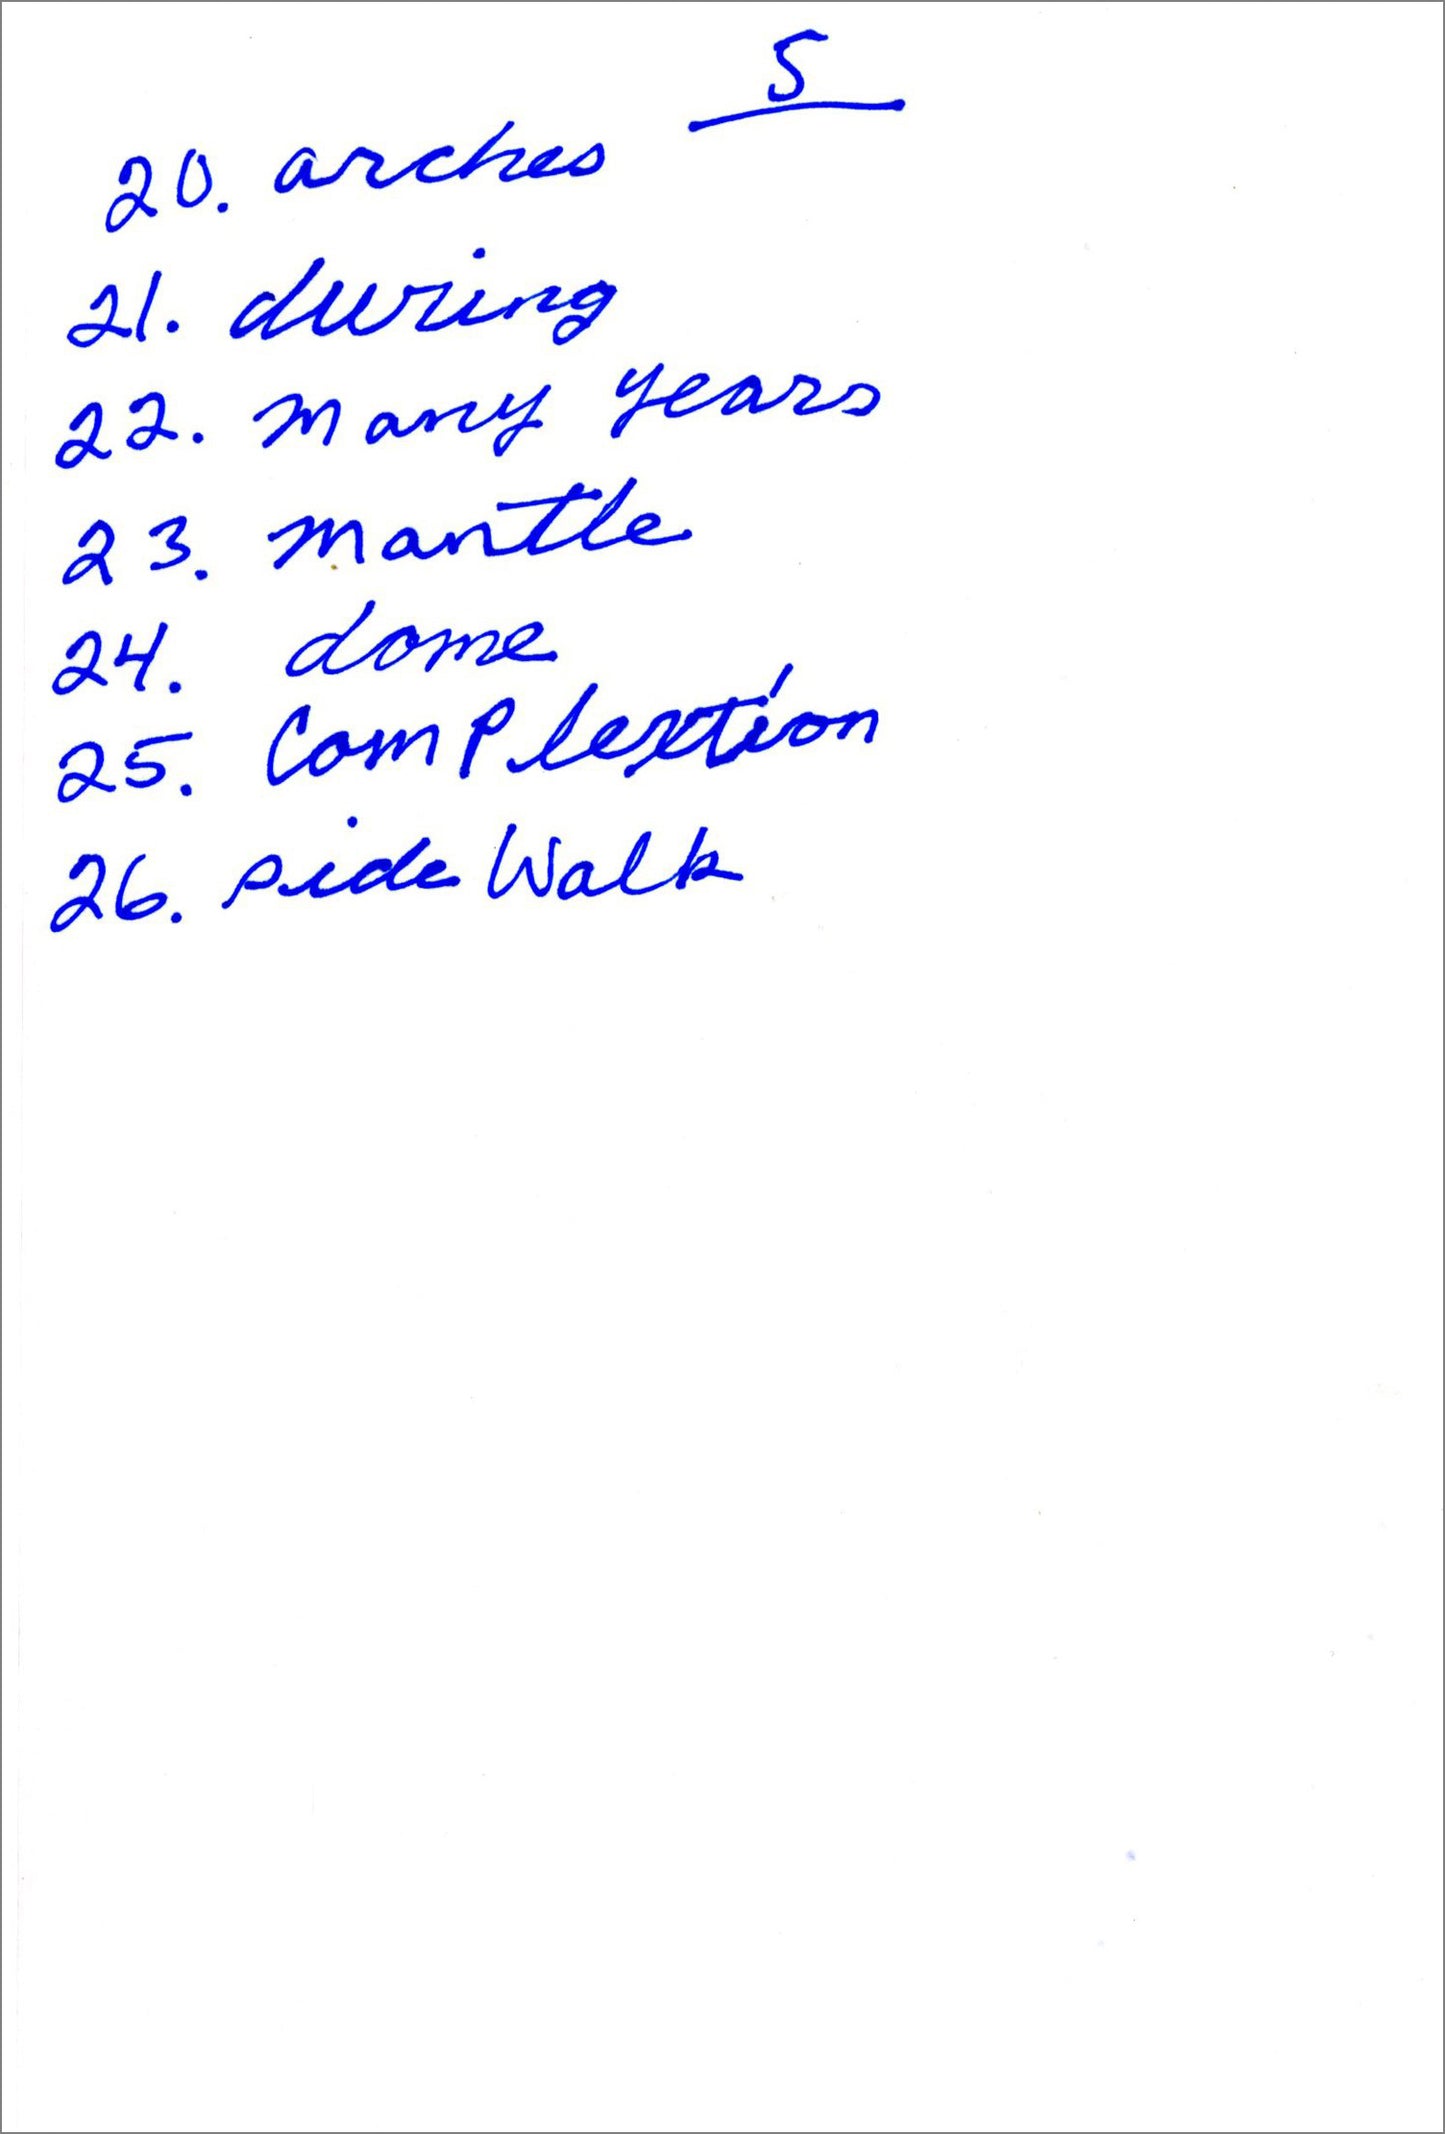 5
20. arches
21. during
22. many years
23. mantle
24. dome
25. Complextion
26. side Walk